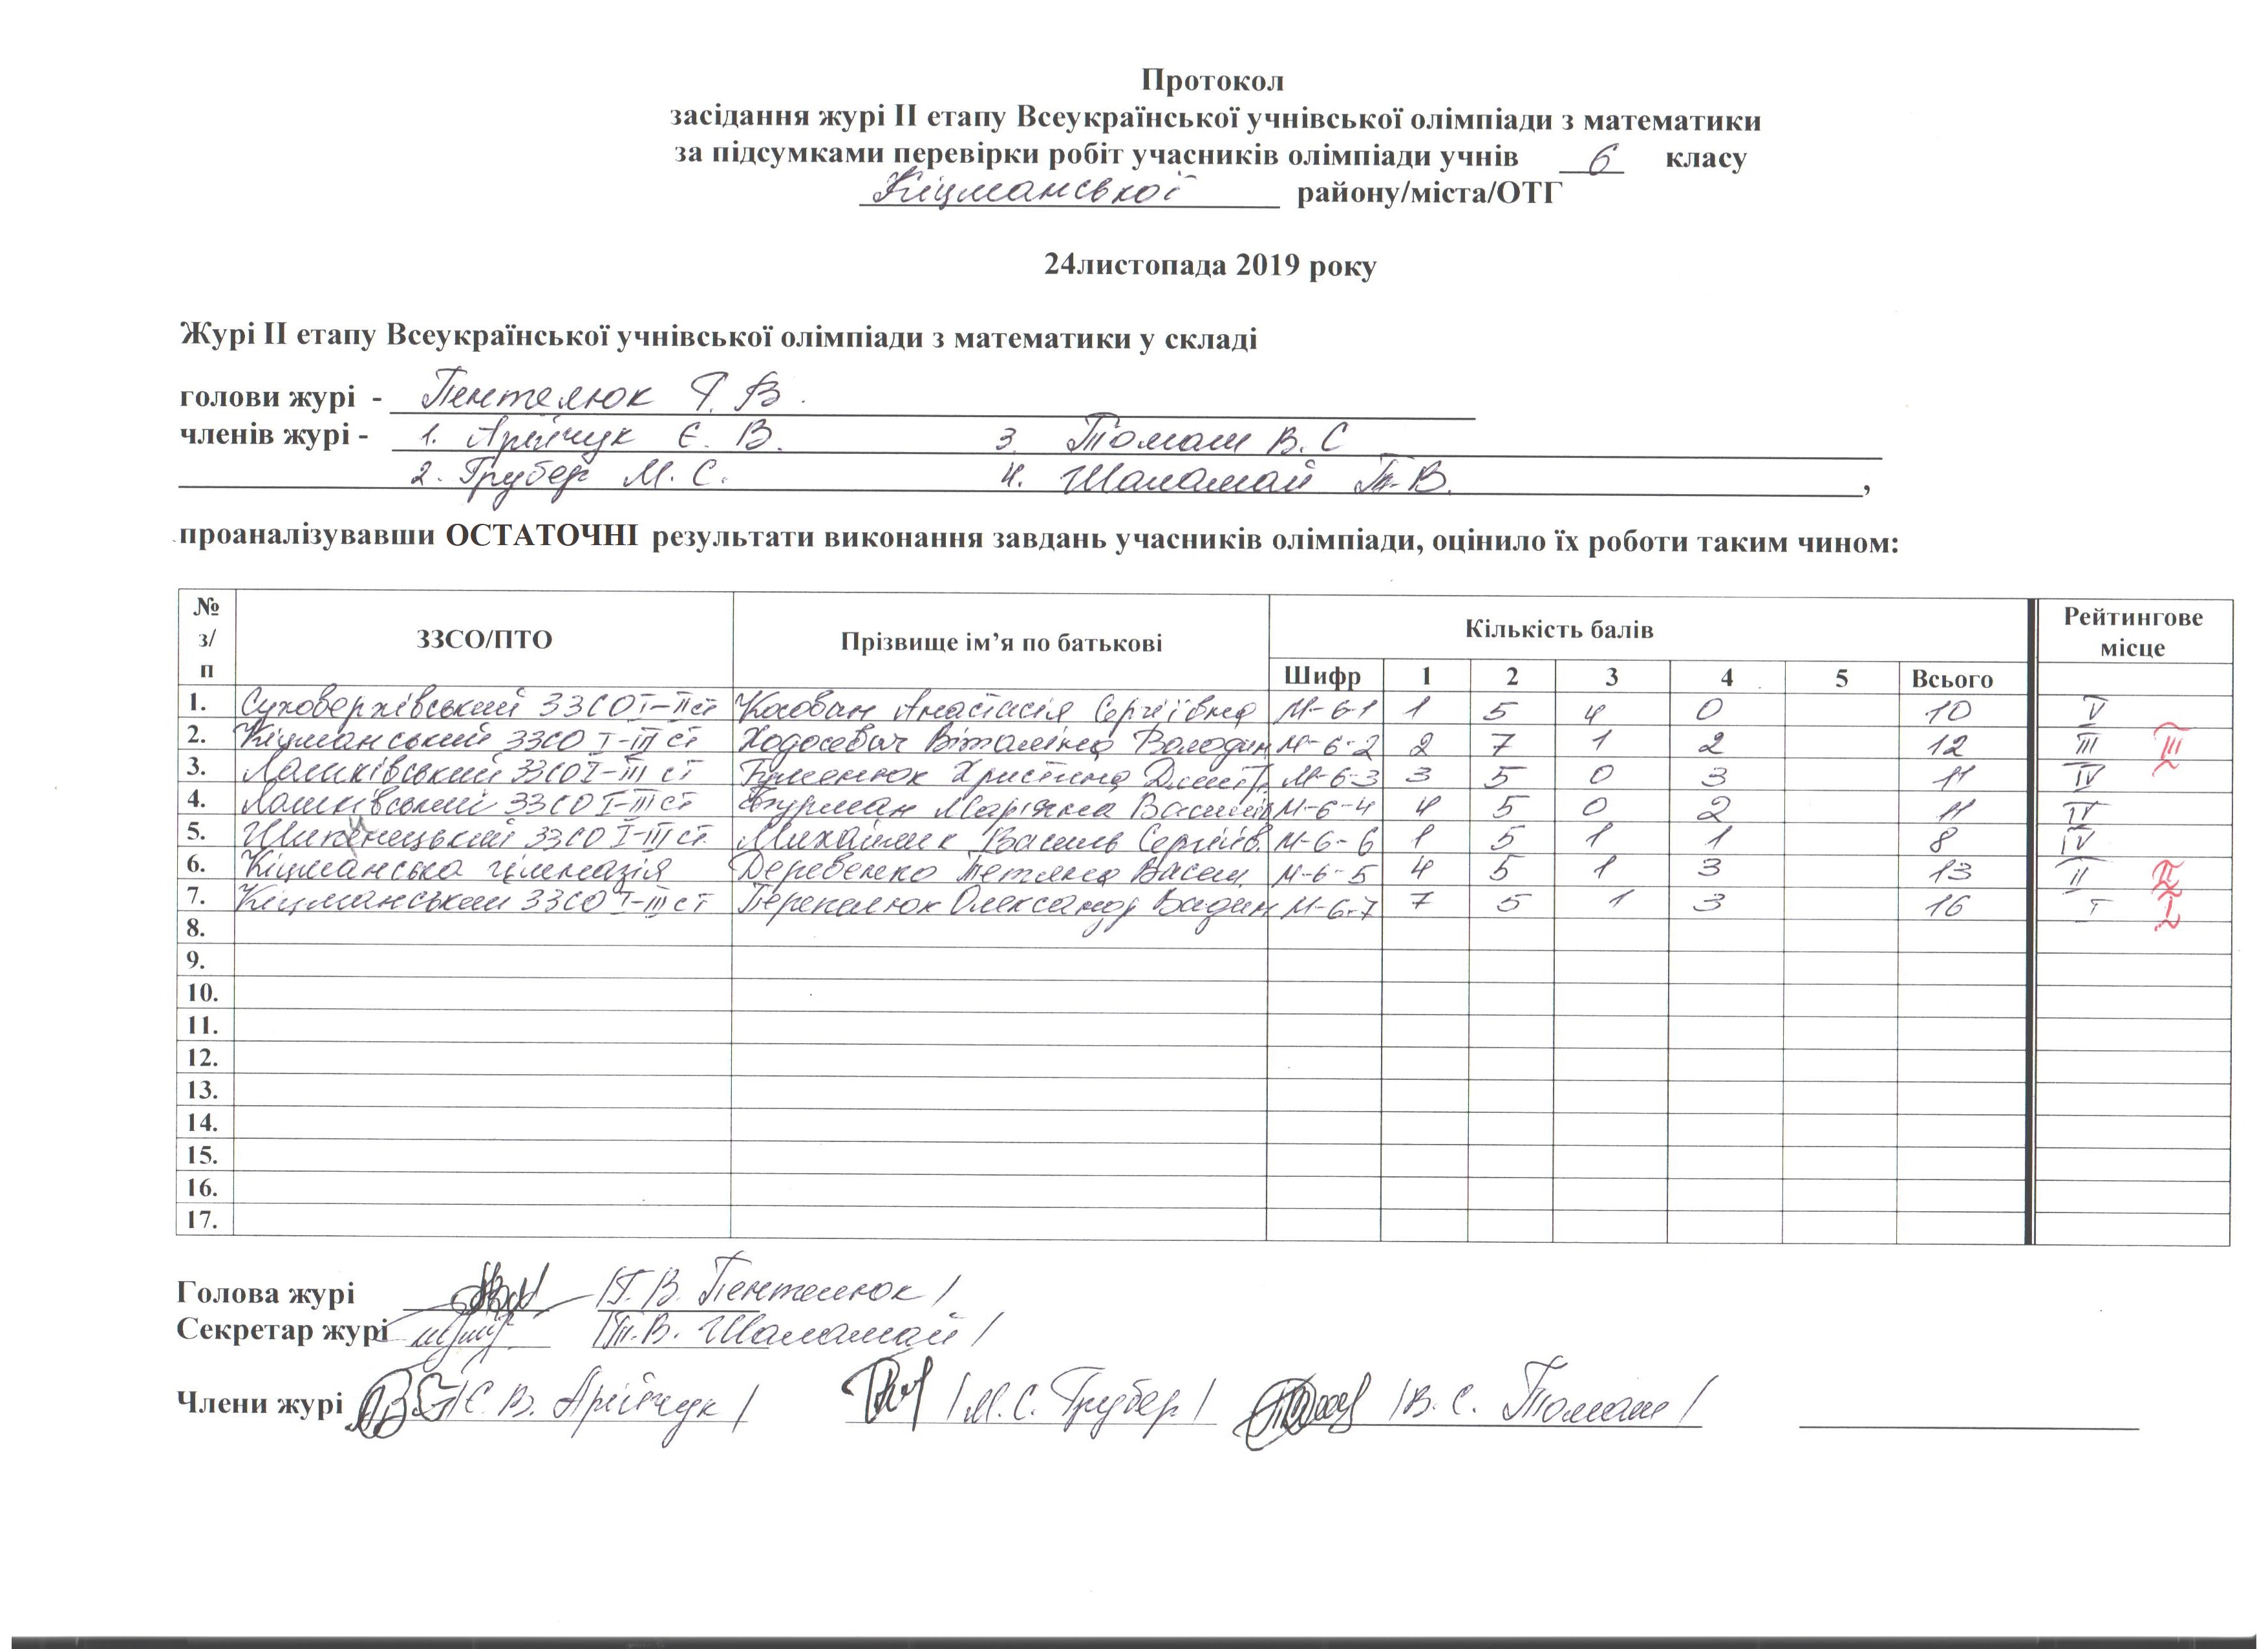 Протокол
засідання журі ІІ етапу Всеукраїнської учнівської олімпіади з математики
за підсумками перевірки робіт учасників олімпіади учнів 6 класу
Кіцманської району/міста/ОТГ
24листопада 2019 року
Журі ІІ етапу Всеукраїнської учнівської олімпіади з математики у складі
голови журі - Пентелюк Г. В.
членів журі - 1. Арійчук Є. В. 3. Томаш В. С
2. Грубер М. С. 4. Шаламай Т. В. ,
проаналізувавши ОСТАТОЧНІ результати виконання завдань учасників олімпіади, оцінило їх роботи таким чином:
№ з/п ЗЗСО/ПТО Прізвище ім’я по батькові Кількість балів Рейтингове місце
Шифр 1 2 3 4 5 Всього
1. Суховерхівський ЗЗСО І-ІІ ст Косован Анастасія Сергіївна М-6-1 1 5 4 0 10 V
2. Кіцманський ЗЗСО І-ІІІ ст Ходосевич Віталіна Володим М-6-2 2 7 1 2 12 ІІІ ІІІ
3. Лашківський ЗЗСО І-ІІІ ст Христина Дмитр. М-6-3 3 5 0 3 11 IV
4. Лашківський ЗЗСО І-ІІІ ст Фурман Мар'яна Василів М-6-4 4 5 0 2 11 IV
5. Шипинецький ЗЗСО І-ІІІ ст. Василь Сергійов. М-6-6 1 5 1 1 8 IV
6. Кіцманська гімназія Деревенко Тетяна Васил. М-6-5 4 5 1 3 13 ІІ ІІ
7. Кіцманський ЗЗСО І-ІІІ ст Перепелюк Олександр Вадим М-6-7 7 5 1 3 16 І І
8.
9.
10.
11.
12.
13.
14.
15.
16.
17.
Голова журі /Г. В. Пентелюк/
Секретар журі /Т. В. Шаламай/
Члени журі /Є. В. Арійчук/ /М. С. Грубер/ /В. С. Томаш/